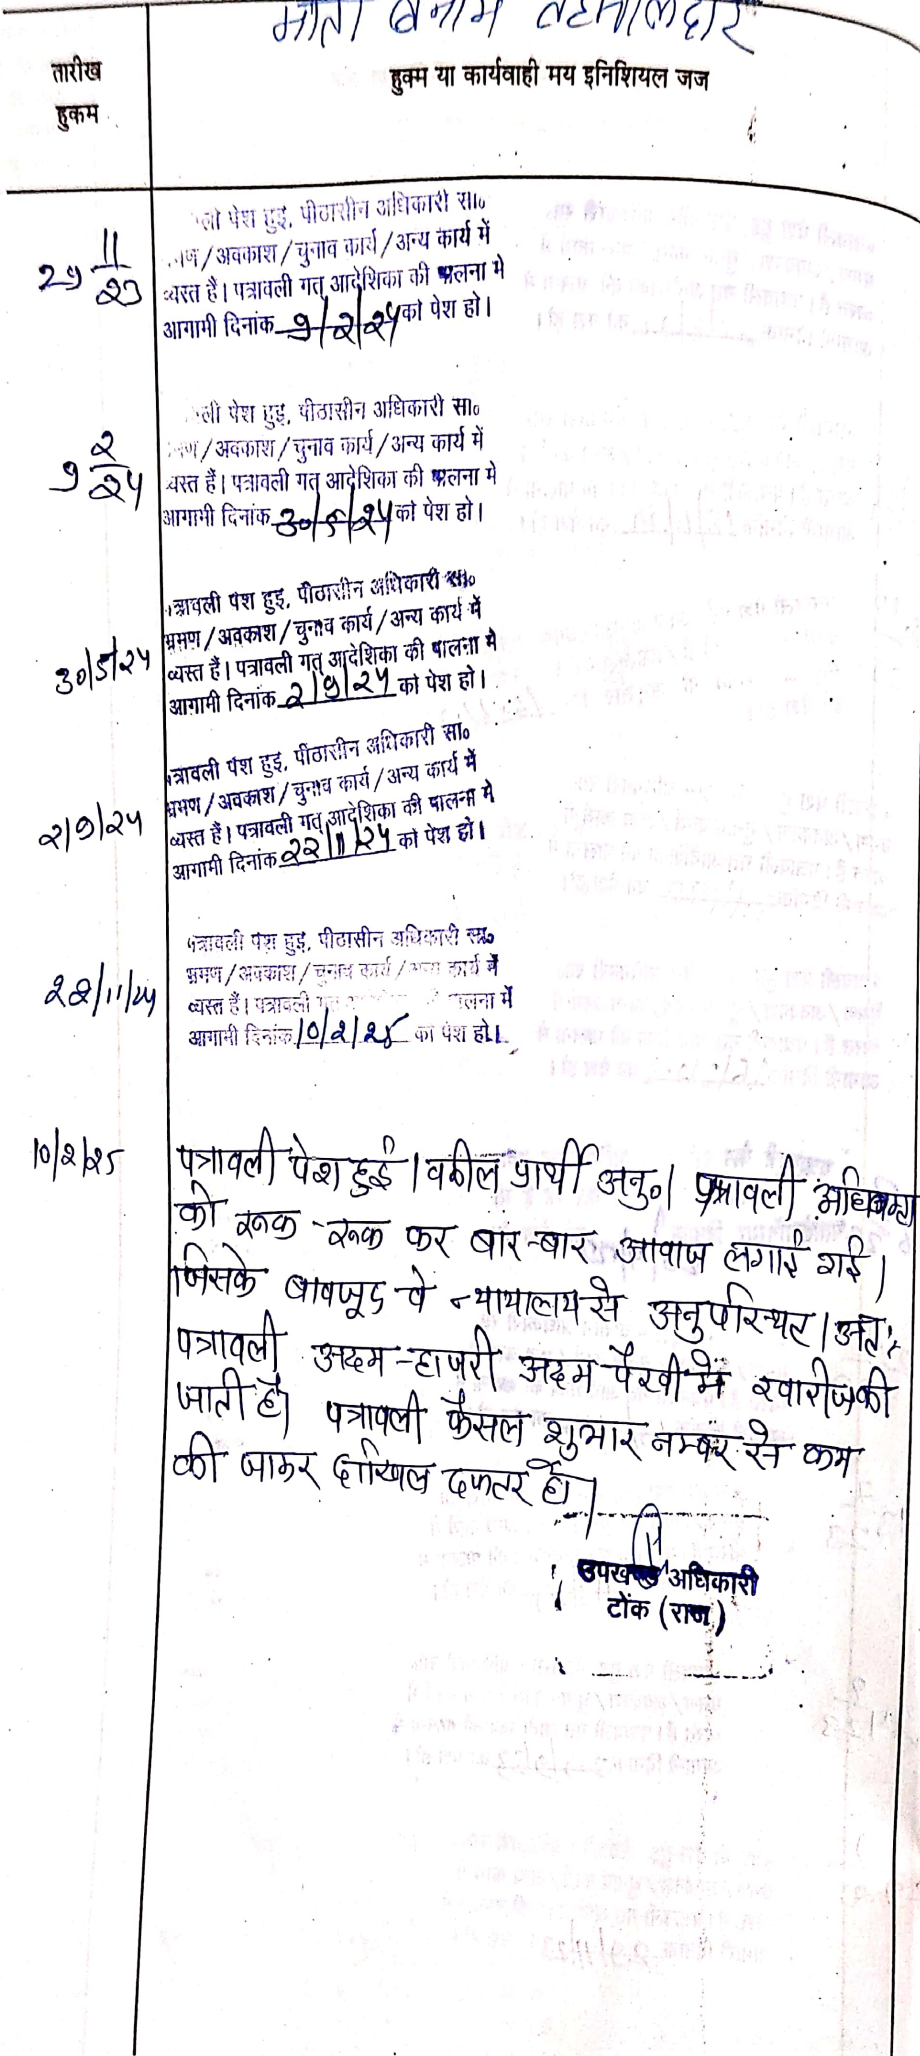 माता बनाम तहसीलदार
तारीख
हुकम
हुक्म या कार्यवाही मय इनिशियल जज
29 11/23
ली पेश हुई, पीठासीन अधिकारी सा०
मण/अवकाश/चुनाव कार्य/अन्य कार्य में
व्यस्त हैं। पत्रावली गत् आदेशिका की पालना मे
आगामी दिनांक 9/2/24 को पेश हो।
9 2/24
ली पेश हुई, पीठासीन अधिकारी सा०
मण/अवकाश/चुनाव कार्य/अन्य कार्य में
व्यस्त हैं। पत्रावली गत् आदेशिका की पालना मे
आगामी दिनांक 30/5/24 को पेश हो।
30/5/24
त्रावली पेश हुई, पीठासीन अधिकारी सा०
भ्रमण/अवकाश/चुनाव कार्य/अन्य कार्य में
व्यस्त हैं। पत्रावली गत् आदेशिका की पालना मे
आगामी दिनांक 2/9/24 को पेश हो।
2/9/24
त्रावली पेश हुई, पीठासीन अधिकारी सा०
भ्रमण/अवकाश/चुनाव कार्य/अन्य कार्य में
व्यस्त हैं। पत्रावली गत् आदेशिका की पालना मे
आगामी दिनांक 22/11/24 को पेश हो।
22/11/24
पत्रावली पेश हुई, पीठासीन अधिकारी सा०
भ्रमण/अवकाश/चुनाव कार्य/अन्य कार्य में
व्यस्त हैं। पत्रावली गत पालना में
आगामी दिनांक 10/2/25 को पेश हो।
10/2/25
पत्रावली पेश हुई। वकील प्रार्थी अनु०। पत्रावली
को रूक-रूक कर बार-बार आवाज लगाई गई।
जिसके बावजूद वे न्यायालय से अनुपस्थित। अत:
पत्रावली अदम-हाजरी अदम पैरवी में खारीज की
जाती है। पत्रावली फैसल शुमार नम्बर से कम
की जाकर दाखिल दफ्तर हो।
उपखण्ड अधिकारी
टोंक (राज)